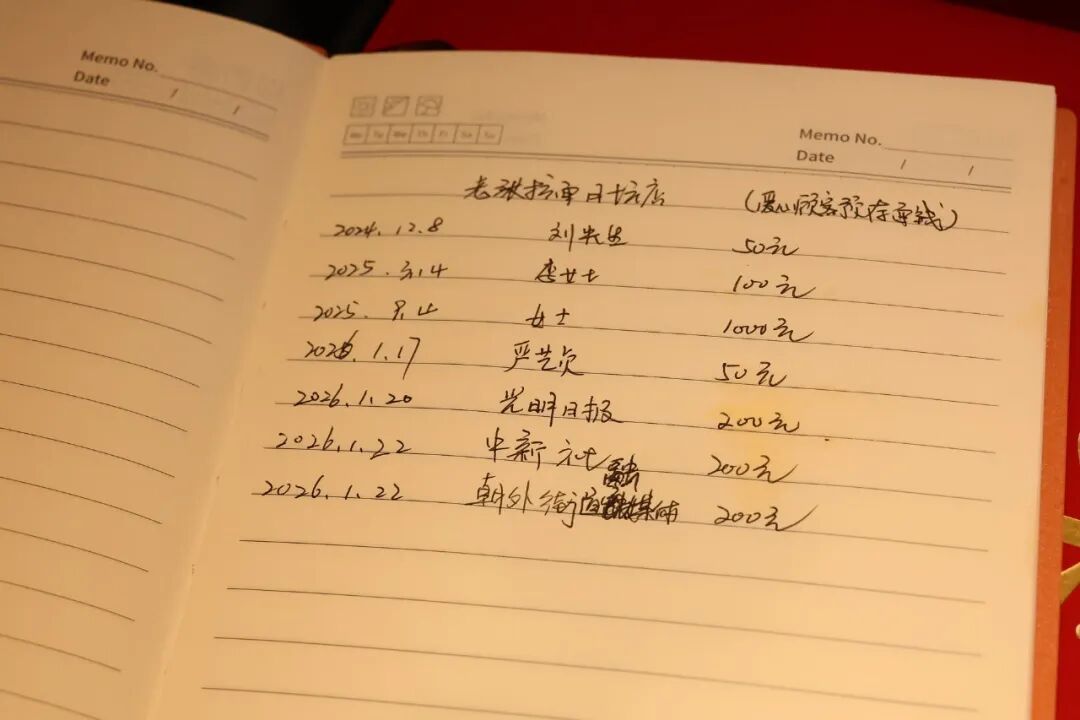 Memo No.
Date / /
Mo Tu We Th Fr Sa Su
Memo No.
Date / /
老张拉面日坛店 (爱心顾客预存面钱)
2024.12.8 刘先生 50元
2025.3.14 李女士 100元
2025. 9.4 女士 1000元
2026.1.17 严 50元
2026.1.20 光明日报 200元
2026.1.22 中新社 200元
2026.1.22 朝外街道融媒体 200元